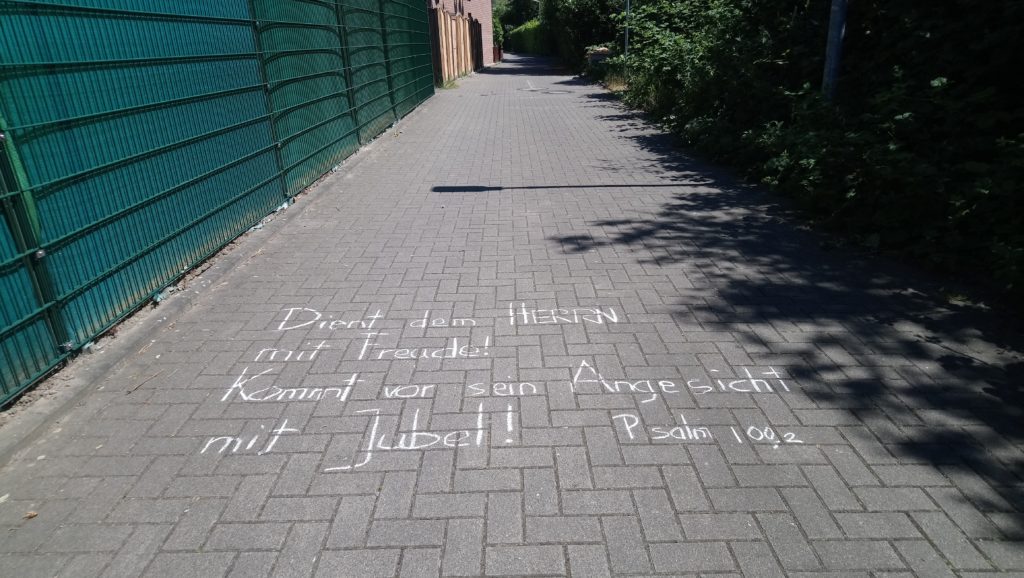 Dient dem HERRN
mit Freude!
Kommt vor sein Angesicht
mit Jubel! Psalm 100,2